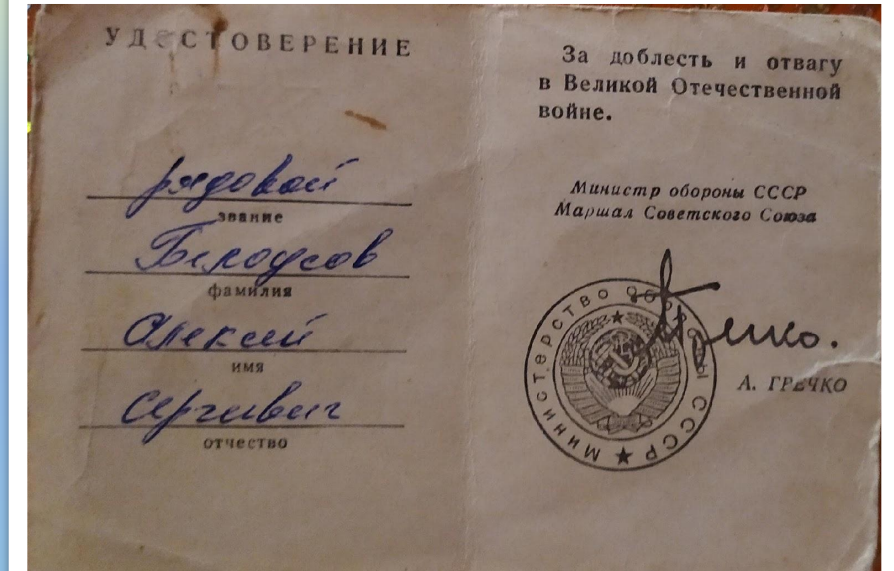 УДОСТОВЕРЕНИЕ
рядовой
звание
Белоусов
фамилия
Алексей
имя
Сергеевич
отчество
За доблесть и отвагу
в Великой Отечественной
войне.
Министр обороны СССР
Маршал Советского Союза
Министерство Обороны СССР
Гречко.
А. ГРЕЧКО